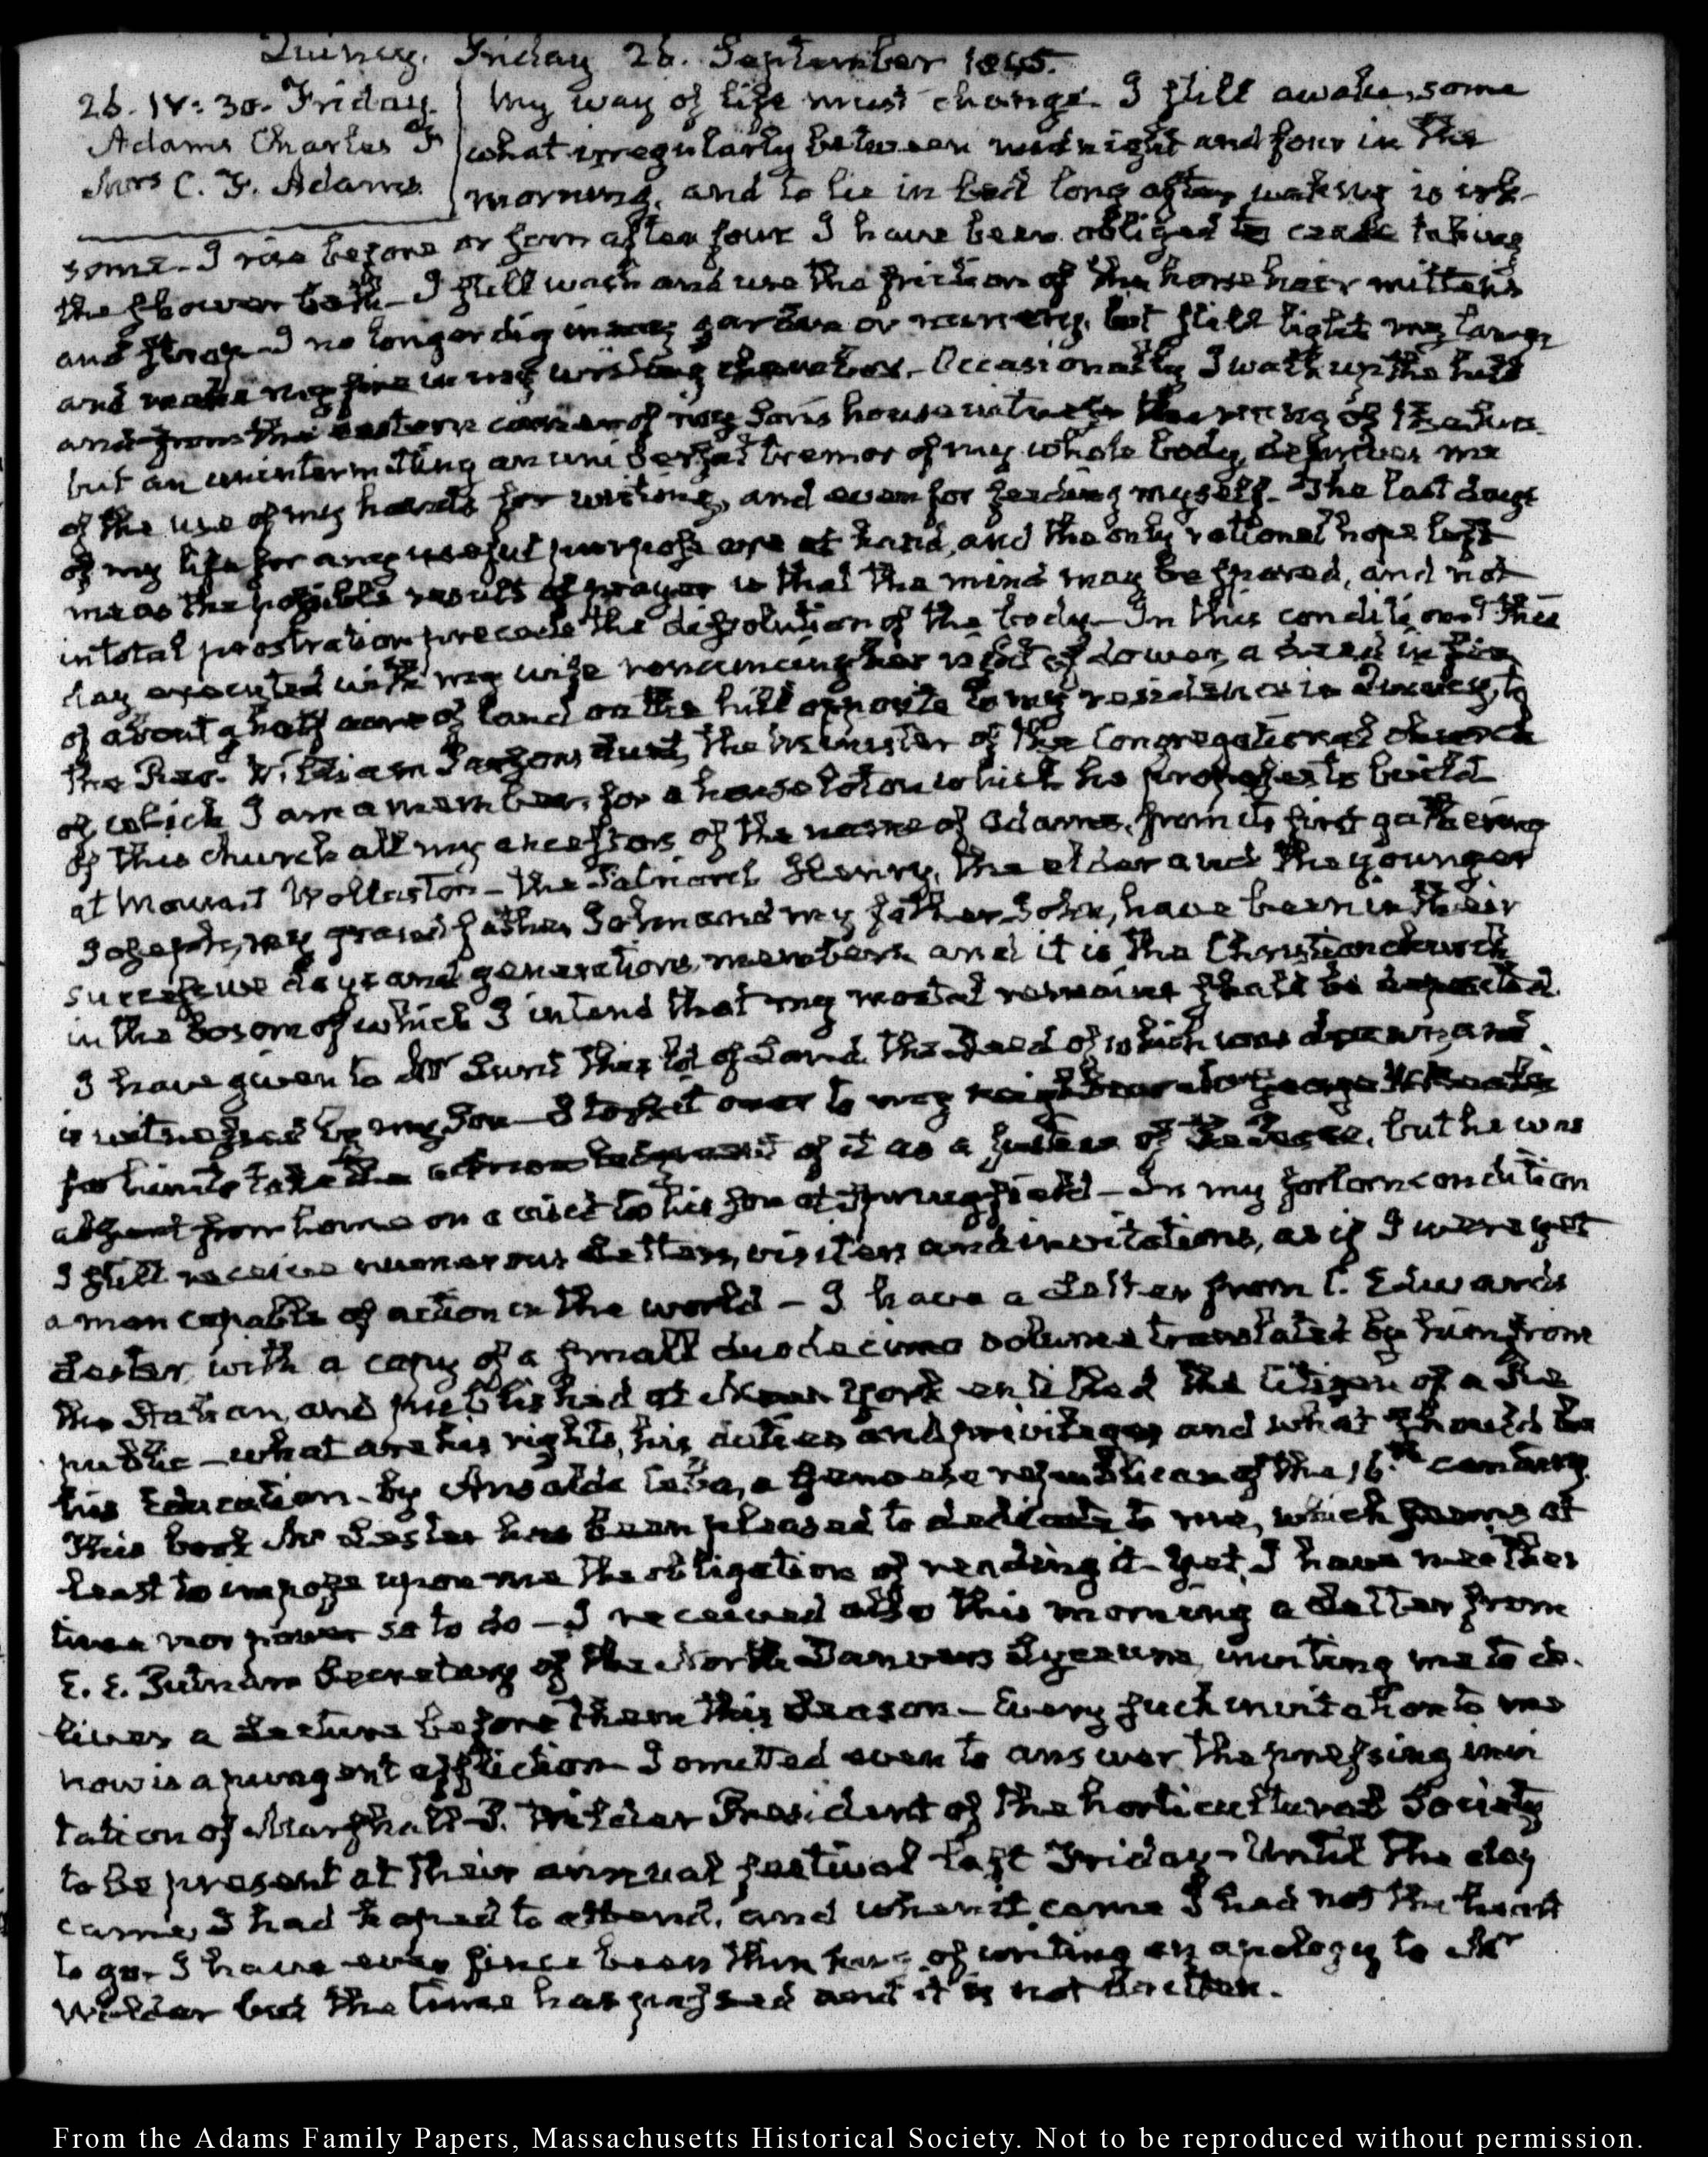 Quincy. Friday 26. September 1845.
26. IV: 30. Friday.
Adams Charles F
Mrs C. F. Adams.
My way of life must change. I still awake, some
what irregularly between midnight and four in the
morning, and to lie in bed long after waking is irk-
some. I rise before or soon after four I have been obliged to cease taking
the shower bath. I still wash and use the friction of the horse hair mittens
and strap. I no longer dig in my garden or nursery, but still light my lamp
and make my fire in my writing chamber. Occasionally I walk up the hill
and from the eastern corner of my Son's house witness the rising of the Sun
but an unintermitting an universal tremor of my whole body, deprives me
of the use of my hands for writing, and even for feeding myself. The last days
of my life for any useful purpose are at hand, and the only rational hope left
me as the possible result of prayer is that the mind may be spared, and not
in total prostration precede the dissolution of the body. In this condition I this
day executed with my wife renouncing her right of dower, a deed in fee
of about a half acre of land on the hill opposite to my residence in Quincy, to
the Rev. William Parsons Lunt, the Minister of the Congregational church
of which I am a member, for a house lot on which he proposes to build
Of this church all my ancestors of the name of Adams, from its first gathering
at Mount Wollaston - the Patriarch Henry, the elder and the younger
Joseph, my grandfather John and my father John, have been in their
successive days and generations, members and it is the Christian church
in the bosom of which I intend that my mortal remains shall be deposited.
I have given to Mr Lunt this lot of Land. The Deed of which was drawn, and
is witnessed by my Son - I took it over to my neighbour Mr George
for him to take the acknowledgment of it as a Justice of the Peace, but he was
absent from home on a visit to his Son at Springfield - In my forlorn condition
I still receive numerous Letters, visitors and invitations, as if I were yet
a man capable of action in the world - I have a Letter from C. Edwards
Lester, with a copy of a small duodecimo volume translated by him from
the Italian, and published at New York entitled The Citizen of a Re
public - what are his rights, his duties and privileges and what should be
his Education - by Ansaldo Ceba, a Genoese republican of the 16th century.
This book Mr Lester has been pleased to dedicate to me, which seems at
least to impose upon me the obligation of reading it - Yet, I have neither
time nor power so to do - I received also this morning a Letter from
E. E. Putnam Secretary of the North Danvers Lyceum, inviting me to de-
liver a Lecture before them this Season - Every such invitation to me
now is a pungent affliction I omitted even to answer the pressing invi
tation of Marshall P. Wilder President of the horticultural Society
to be present at their annual festival last Friday - Until the day
came, I had hoped to attend, and when it came I had not the heart
to go. I have ever since been thinking of writing an apology to Mr
Wilder but the time has passed and it is not written.
From the Adams Family Papers, Massachusetts Historical Society. Not to be reproduced without permission.